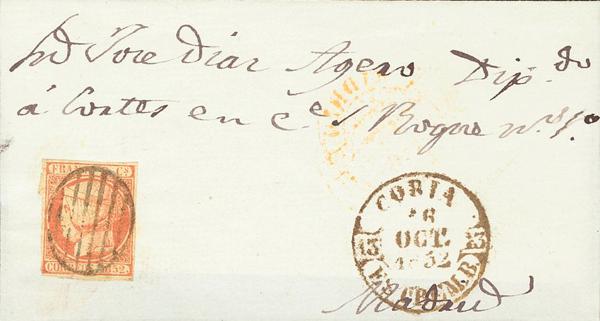 Dn Jose Diaz Agero Dip.do
á Cortes en C.e S Roque n.º 1.º
FRANCO 6 Cs
CORREOS 1852
CORIA
16
OCT.
1852
13 13
Madrid